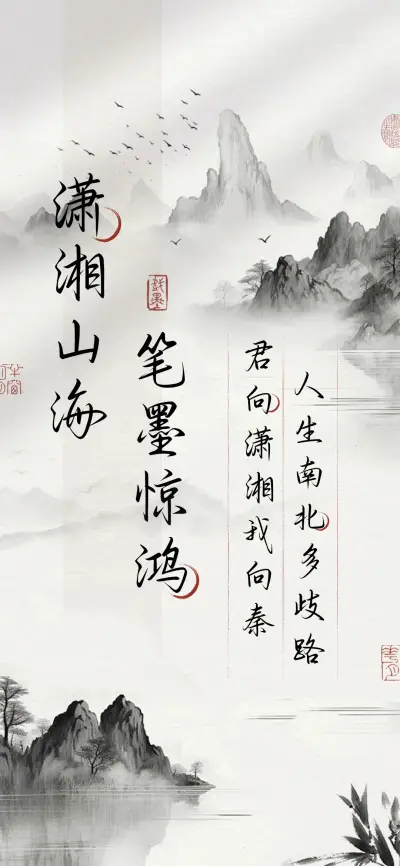 潇湘山海
笔墨惊鸿
人生南北多歧路
君向潇湘我向秦